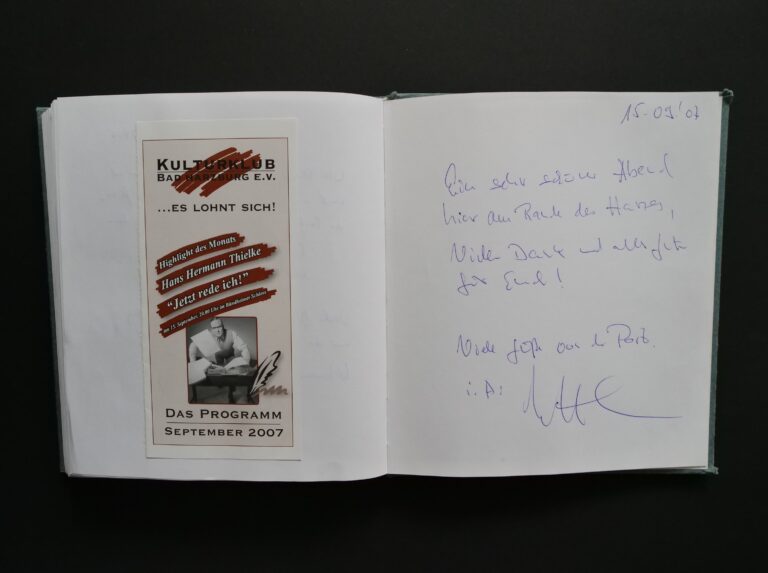 KULTURKLUB
BAD HARZBURG E.V.
...ES LOHNT SICH!
Highlight des Monats
Hans Hermann Thielke
"Jetzt rede ich!"
am 15. September, 20.00 Uhr im Bündheimer Schloss
DAS PROGRAMM
SEPTEMBER 2007
15.09'07
Ein sehr schöner Abend
hier am Rande des Harzes,
Vielen Dank und alles Gute
für Euch!
Viele Grüße aus der Post.
i.A: